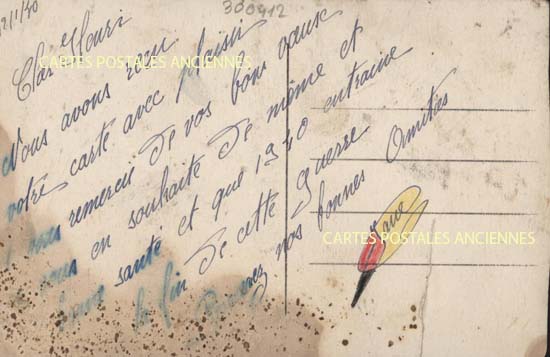 2/1/40
300912
Cher Henri
Nous avons reçu
votre carte avec plaisir
remercie de vos bons vœux
vous en souhaite de même et
bonne santé et que 1940 entraine
la fin de cette guerre
Recevez nos bonnes Amitiés
CARTES POSTALES ANCIENNES
CARTES POSTALES ANCIENNES